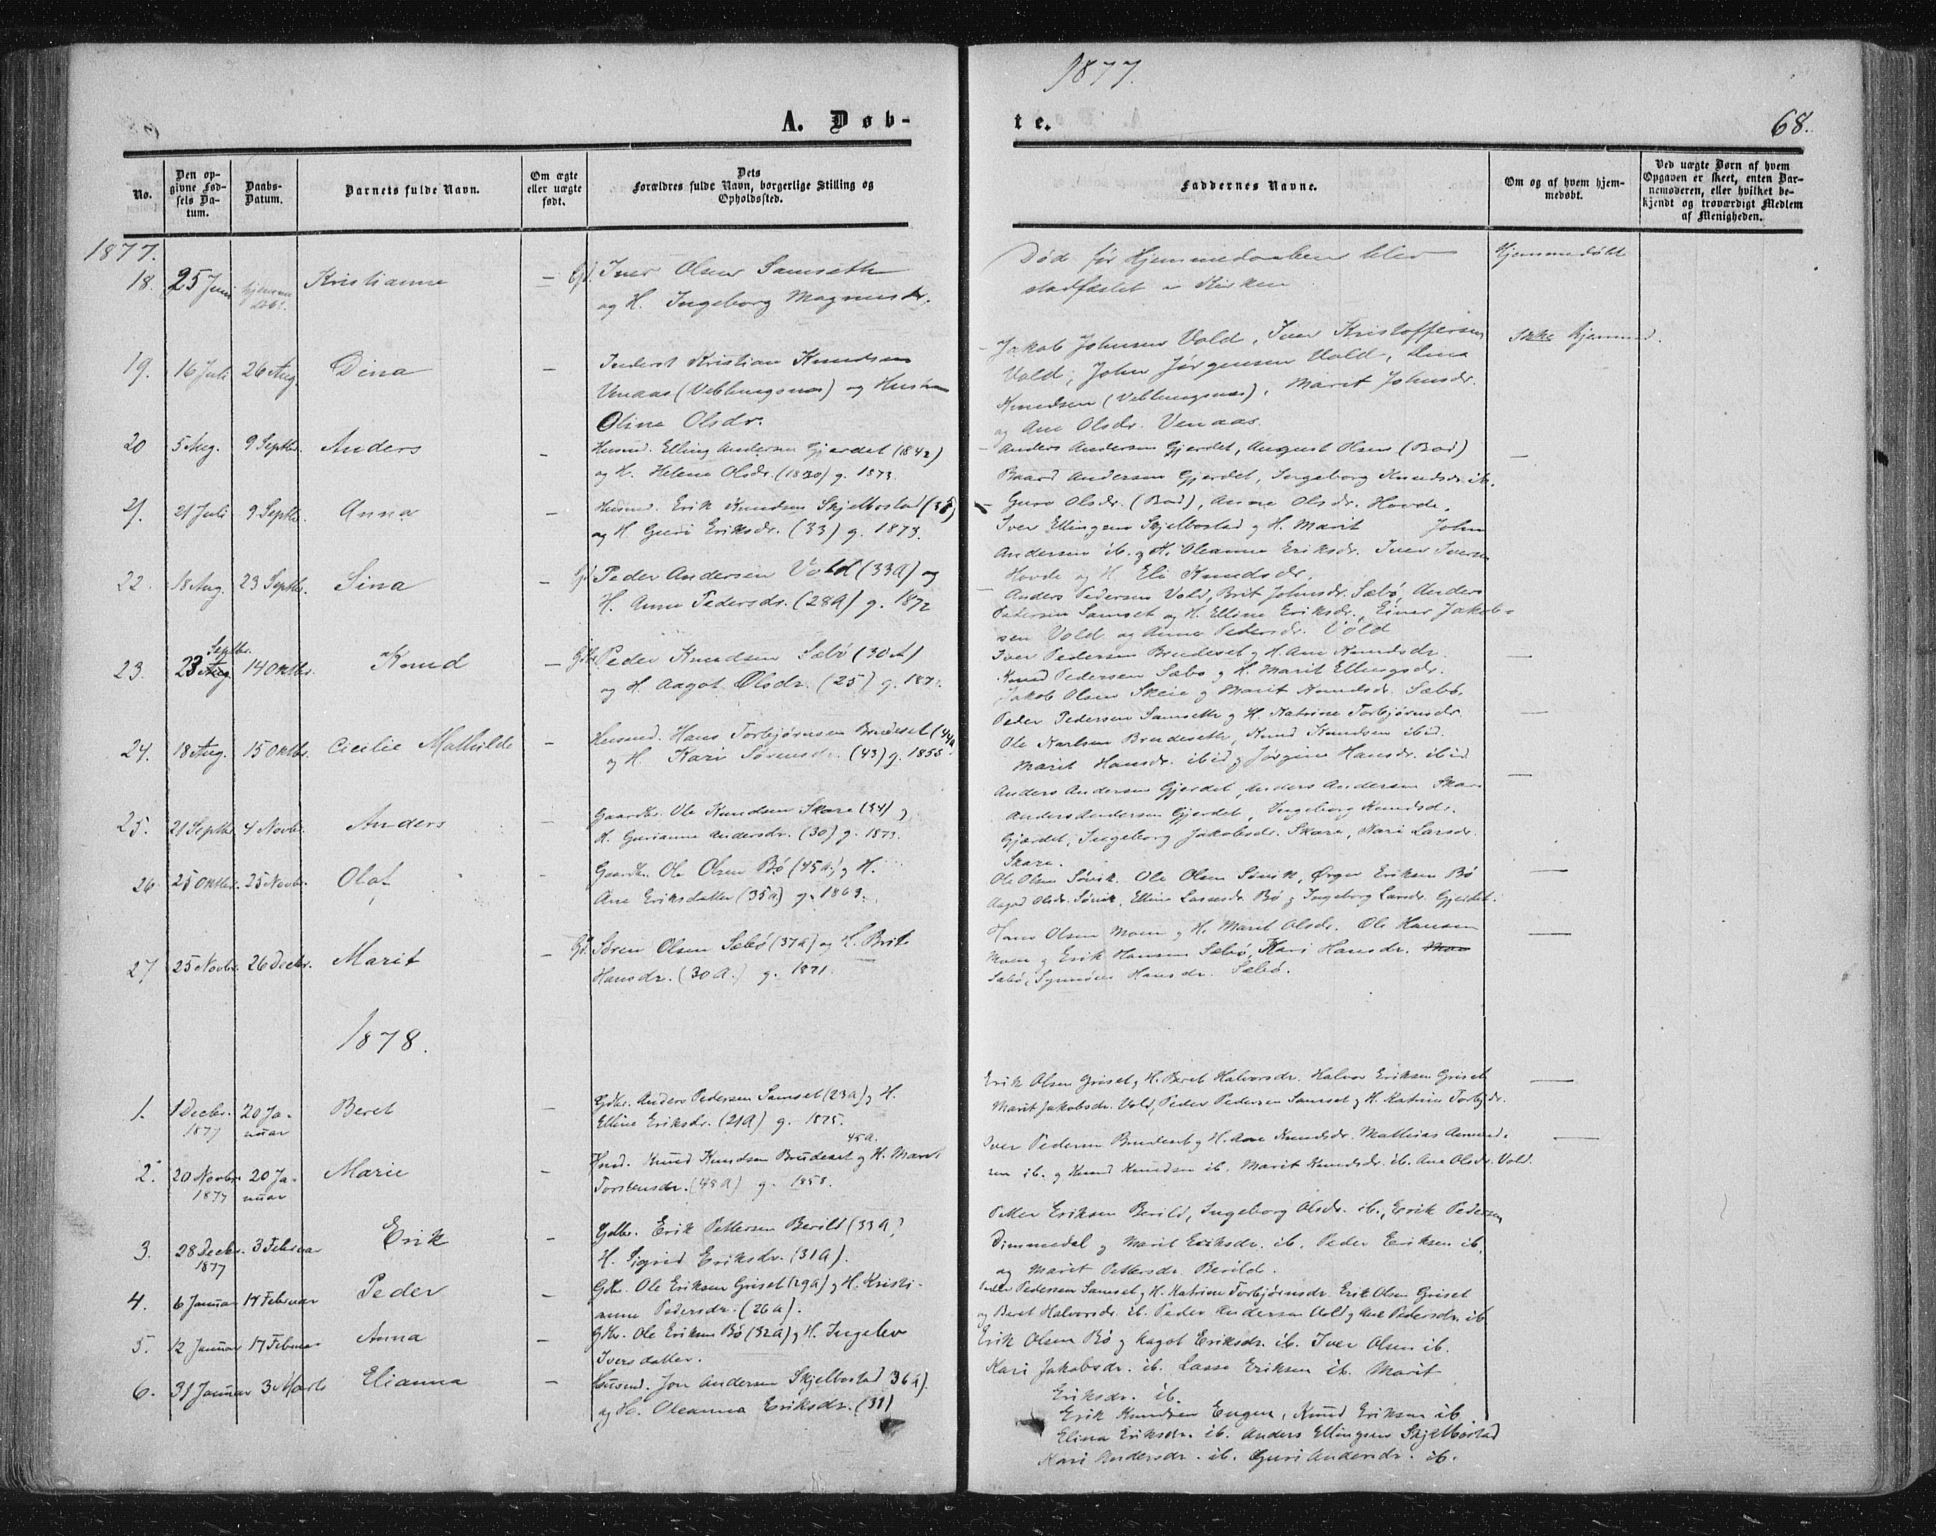 1877.
A. Døb-
te.
68.
No.
Den op-
givne Fød-
sels Da-
tum.
Daabs-
Datum.
Barnets fulde Navn.
Om ægte
eller uægte
født.
Dets
Forældres fulde Navn, borgerlige Stilling og
Opholdssted.
Faddernes Navne.
Om og af hvem hjem-
medøbt.
Ved uægte Børn af hvem
Opgaven er skeet, enten Bar-
nemoderen, eller hvilket be-
kjendt og troværdigt Medlem
af Menigheden.
1877.
18. 25 Juni Kristianna — Iver Olsen Samseth
og H. Ingeborg Magnusdr.
Død før Hjemmedaaben blev
stadfæstet i Kirken
Hjemmedøbt
19. 16 Juli 26 Aug. Dina — Inderst Kristian Knudsen
Venaas (Veblungsnæs) og Hustru
Oline Olsdr.
Jakob Johnsen Vold, Iver Kristoffersen
Vold, John Jørgensen Vold, Dina
Knudsen (Veblungsnæs), Marit Johnsdr.
og Ane Olsdr. Venaas.
Ikke hjemmed.
20 5 Aug. 9 Septbr. Anders — Husmd. Elling Andersen Gjerdet (1842)
og H. Helene Olsdr. (1830) g. 1873.
Anders Andersen Gjerdet, August Olsen (Bod)
Baard Andersen Gjerdet, Ingeborg Knudsdr. ib.
Guro Olsdr. (Bod), Anne Olsdr. Hovde. —
21. 21 Juli 9 Septbr. Anna — Husmd. Erik Knudsen Skjelbostad (38)
og H. Guri Eriksdr. (33) g. 1873.
Iver Ellingsen Skjelbostad og H. Marit John
Andersen ib. og H. Oleanna Eriksdr. Iver Iversen
Hovde og H. Eli Knudsdr.
22. 18 Aug. 23 Septbr. Sina — Peder Andersen Vold (33A) og
H. Anne Pedersdr. (28A) g. 1872
Anders Pedersen Vold, Brit Johnsdr. Sæbø, Anders
Pedersen Samset og H. Elline Eriksdr., Einer Jakob-
sen Vold og Anne Pedersdr. Vold
23. 23 Septbr. Aug. 14 Oktbr. Knud — Gdbr. Peder Knudsen Sæbø (30A)
og H. Aagot Olsdr. (25) g. 1871.
Iver Pedersen Brudeset og H. Ane Knudsdr.
Knud Pedersen Sæbø og H. Marit Ellingsdr.
Jakob Olsen Skeie og Marit Knudsdr. Sæbø. —
24. 18 Aug. 15 Oktbr. Cicilie Mathilde — Husmd. Hans Torbjørnsen Brudeset (44A
og H. Kari Sørensdr. (43) g. 1855.
Peder Pedersen Samseth og H. Katrine Torbjørnsdr.
Ole Karlsen Brudeseth, Knud Knudsen ibid.
Marit Hansdr. ibid og Jørgine Hansdr. ibid —
25. 21 Septbr. 4 Novbr. Anders — Gaardbr. Ole Knudsen Skare (34) og
H. Gurianne Andersdr. (30) g. 1873.
Anders Andersen Gjerdet, Anders Andersen Skare
Anders Andersen Gjerdet, Ingeborg Knudsdr.
Gjærdet, Ingeborg Jakobsdr. Skare, Kari Larsdr.
Skare. —
26 25 Oktbr. 25 Novbr. Olaf — Gaardbr. Ole Olsen Bø (45A) og H.
Ane Eriksdatter (35A) g. 1863.
Ole Olsen Søvik. Ole Olsen Søvik, Ørger Eriksen Bø
Aagot Olsdr. Søvik, Elline Lassesdr. Bø og Ingeborg Larsdr. Gjerdet. —
27 25 Novbr. 26 Decbr. Marit — Søren Olsen Sæbø (37A) og H. Brit
Hansdr. (30A.) g. 1871.
Hans Olsen Moen og H. Marit Olsdr. Ole Hansen
Moen og Erik Hansen Sæbø, Kari Hansdr. Moe
Sæbø, Synnøve Hansdr. Sæbø. —
1878.
1. 1 Decbr. 1877 20 Ja-
nuar Beret — Gdbr. Anders Pedersen Samset (23A) og H.
Elline Eriksdr. (21A) g. 1875.
Erik Olsen Griset og H. Beret Halvorsdr. Halvor Eriksen Griset
Marit Jakobsdr. Vold, Peder Pedersen Samset og H. Katrine Torbjdr. —
2. 20 Novbr. 1877 20 Ja-
nuar Marie — Husmd. Knud Knudsen Brudeset 45A. og H. Marit
Torstensdr. (48A) g. 1858.
Iver Pedersen Brudeset og H. Ane Knudsdr. Mathias Amund-
sen ib. og Knud Knudsen ib. Marit Knudsdr. ib. Ane Olsdr. Vold. —
3. 28 Decbr. 1877 3 Februar Erik — Gdbr. Erik Pettersen Berild (33A),
H. Sigrid Eriksdr. (31A).
Petter Eriksen Berild, Ingeborg Olsdr. ib., Erik Pedersen
Dimmedal og Marit Eriksdr. ib. Peder Eriksen ib.
og Marit Pettersdr. Berild.
4. 6 Januar 17 Februar Peder — Gdbr. Ole Eriksen Griset (29A) og H. Kristi-
anne Pedersdr. (26A).
Peder Pedersen Samset og H. Katrine Torbjørnsdr. Erik Olsen Griset
og Beret Halvorsdr. ib. Peder Andersen Vold og Ane Pedersdr. ib.
5. 12 Januar 17 Februar Anna — Gdbr. Ole Eriksen Bø (32A) og H. Ingelev
Iversdatter.
Erik Olsen Bø og Aagot Eriksdr. ib. Iver Olsen ib.
Kari Jakobsdr. ib. Lasse Eriksen ib. Marit
Eriksdr. ib.
6. 31 Januar 3 Marts Elianna — Husmd. Jon Andersen Skjelbostad 36A).
og H. Oleanna Eriksdr. (31)
Erik Knudsen Engen, Knud Eriksen ib.
Elina Eriksdr. ib. Anders Ellingsen Skjelbostad
Kari Andersdr. ib. Guri Andersdr. ib.